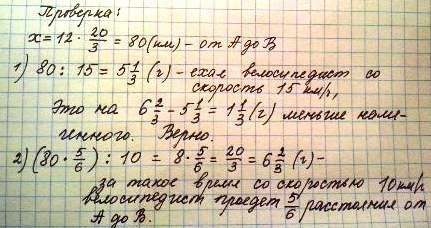 Проверка:
x = 12 · 20/3 = 80 (км) – от А до В
1) 80 : 15 = 5 1/3 (г) – ехал велосипедист со
скорость 15 км/г,
Это на 6 2/3 – 5 1/3 = 1 1/3 (г) меньше наме-
ченного. Верно.
2) (80 · 5/6) : 10 = 8 · 5/6 = 20/3 = 6 2/3 (г) –
за такое время со скоростью 10 км/г
велосипедист проедет 5/6 расстояния от
А до В.